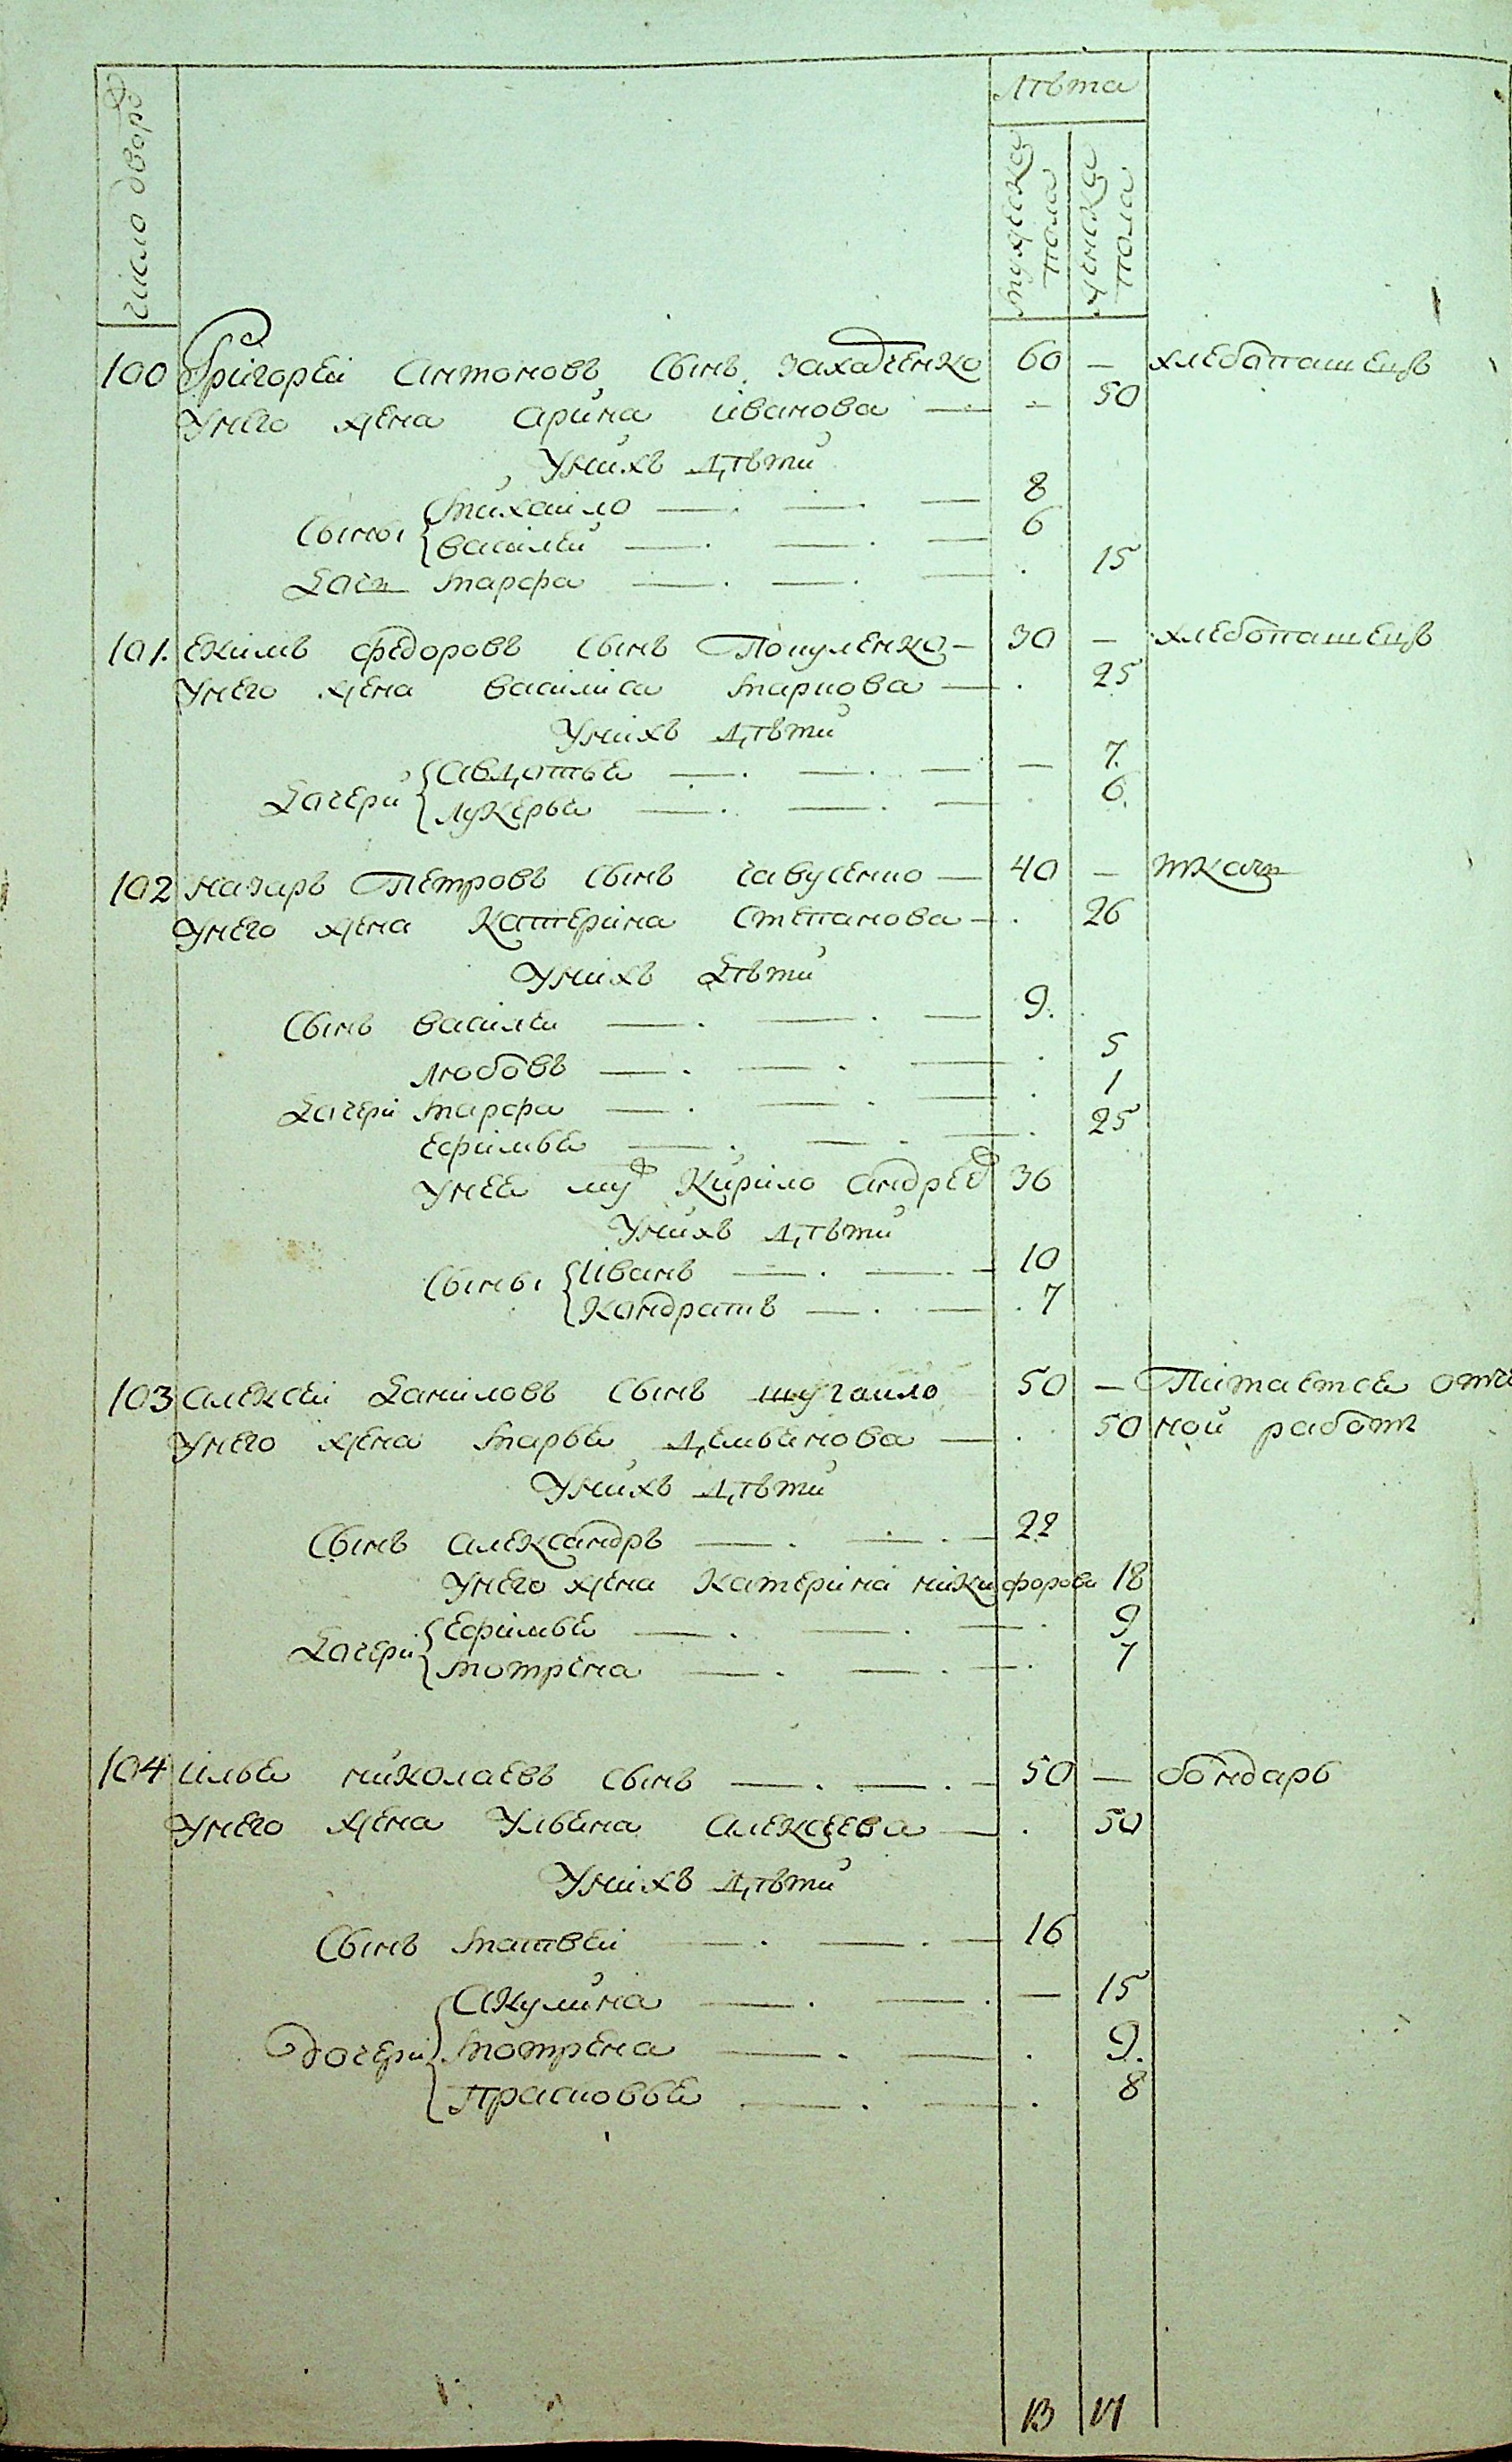 число дворо
Лѣта
мужеска пола
женска пола
100 Григореи Антоновъ сынъ захадченко 60 — хлебопашецъ
Унего жена Арина иванова — - 50
Унихъ дѣти
Сыны { михаило — . — . — 8
василеи — . — . — 6
Доч марфа — . — . — . 15
101. Екимъ федоровъ сынъ Поцуленко — 30 — хлебопашецъ
Унего жена василиса маркова — . 25
Унихъ дѣти
Дочери { Авдотья — . — . — — 7.
лукерья — . — . — . 6.
102 назаръ Петровъ сынъ 40 — ткач
Унего жена Катерина степанова — . 26
Унихъ дѣти
Сынъ василеи — . — . — 9.
любовъ — . — . — . 5
Дочери марфа — . — . — . 1
Ефимья — . — . — . 25
Унея му Кирило андрее 36
Унихъ дѣти
Сыны { Иванъ — . — . — 10
Кондратъ — . — . 7
103 алексеи Даниловъ сынъ шугаило 50 — Питается отче
Унего жена марья демьянова — . 50 ной работ
Унихъ дѣти
Сынъ александръ — . — . — 22
Унего жена катерина никифорова 18
Дочери { Ефимья — . — . — . 9
мотрена — . — . — . 7
104 илья николаевъ сынъ — . — . — 50 — бондарь
Унего жена Ульяна алексеева — . 50
Унихъ дѣти
Сынъ матвеи — . — . — 16
Дочери { Акулина — . — . — 15
мотрена — . — . 9.
прасковья — . — . 8
13 17